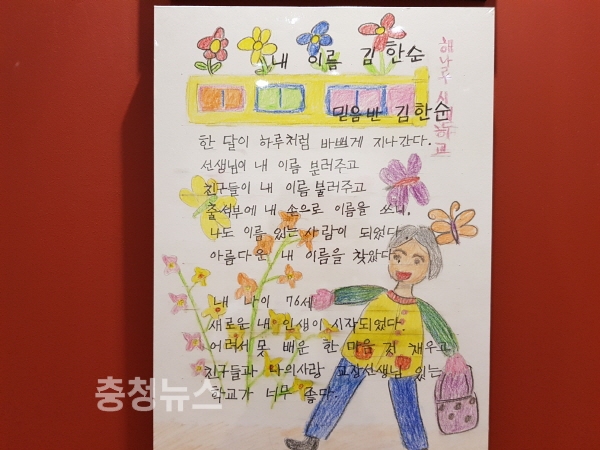 내 이름 김한순
믿음반 김한순
한 달이 하루처럼 바쁘게 지나간다.
선생님이 내 이름 불러주고
친구들이 내 이름 불러주고
출석부에 내 손으로 이름을 쓰니,
나도 이름 있는 사람이 되었다.
아름다운 내 이름을 찾았다
내 나이 76세
새로운 내 인생이 시작되었다
어려서 못 배운 한 마음 껏 채우고
친구들과 나의사랑 교장선생님 있는
학교가 너무 좋다.
충청뉴스